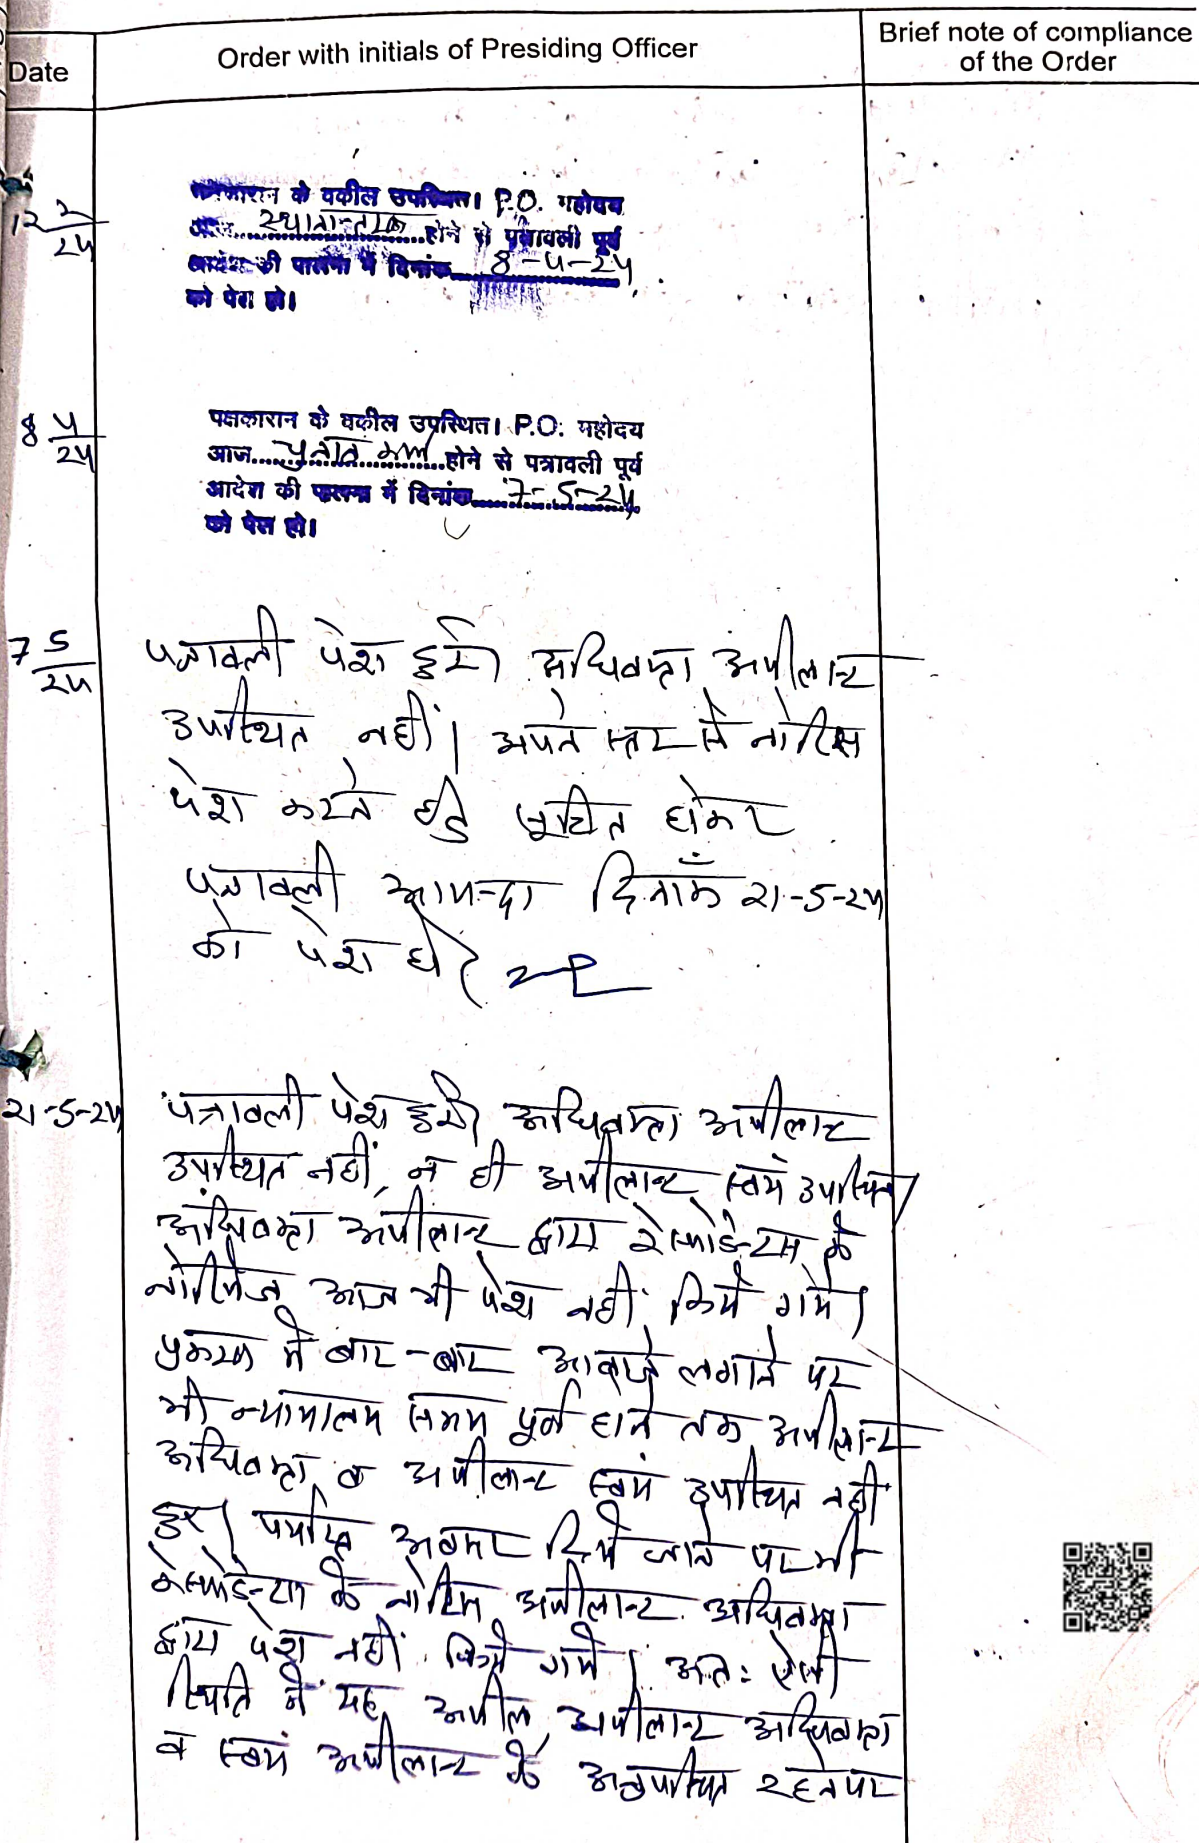 Date
Order with initials of Presiding Officer
Brief note of compliance
of the Order
12 2/24
पक्षकारान के वकील उपस्थित। P.O. महोदय
आज स्थानान्तरण होने से पत्रावली पूर्व
आदेश की पालना में दिनांक 8-4-24
को पेश हो।
8 4/24
पक्षकारान के वकील उपस्थित। P.O. महोदय
आज चुनाव कार्य होने से पत्रावली पूर्व
आदेश की पालना में दिनांक 7-5-24
को पेश हो।
7 5/24
पत्रावली पेश हुई। अधिवक्ता अपीलान्ट
उपस्थित नहीं। अपने स्तर से नोटिस
पेश करने हेतु सूचित होकर
पत्रावली आयन्दा दिनाँक 21-5-24
को पेश हो।
21-5-24
पत्रावली पेश हुई। अधिवक्ता अपीलान्ट
उपस्थित नहीं, न ही अपीलान्ट स्वयं उपस्थित।
अधिवक्ता अपीलान्ट द्वारा रेस्पोडेन्टस के
नोटिसेज आज भी पेश नहीं किये गये।
प्रकरण में बार-बार आवाजे लगाने पर
भी न्यायालय समय पूर्ण होने तक अपीलान्ट
अधिवक्ता व अपीलान्ट स्वयं उपस्थित नहीं
हुए। पर्याप्त अवसर दिये जाने पर भी
रेस्पोडेन्टस के नोटिस अपीलान्ट अधिवक्ता
द्वारा पेश नहीं किये गये। अतः ऐसी
स्थिति में यह अपील अपीलान्ट अधिवक्ता
व स्वयं अपीलान्ट के अनुपस्थित रहने पर